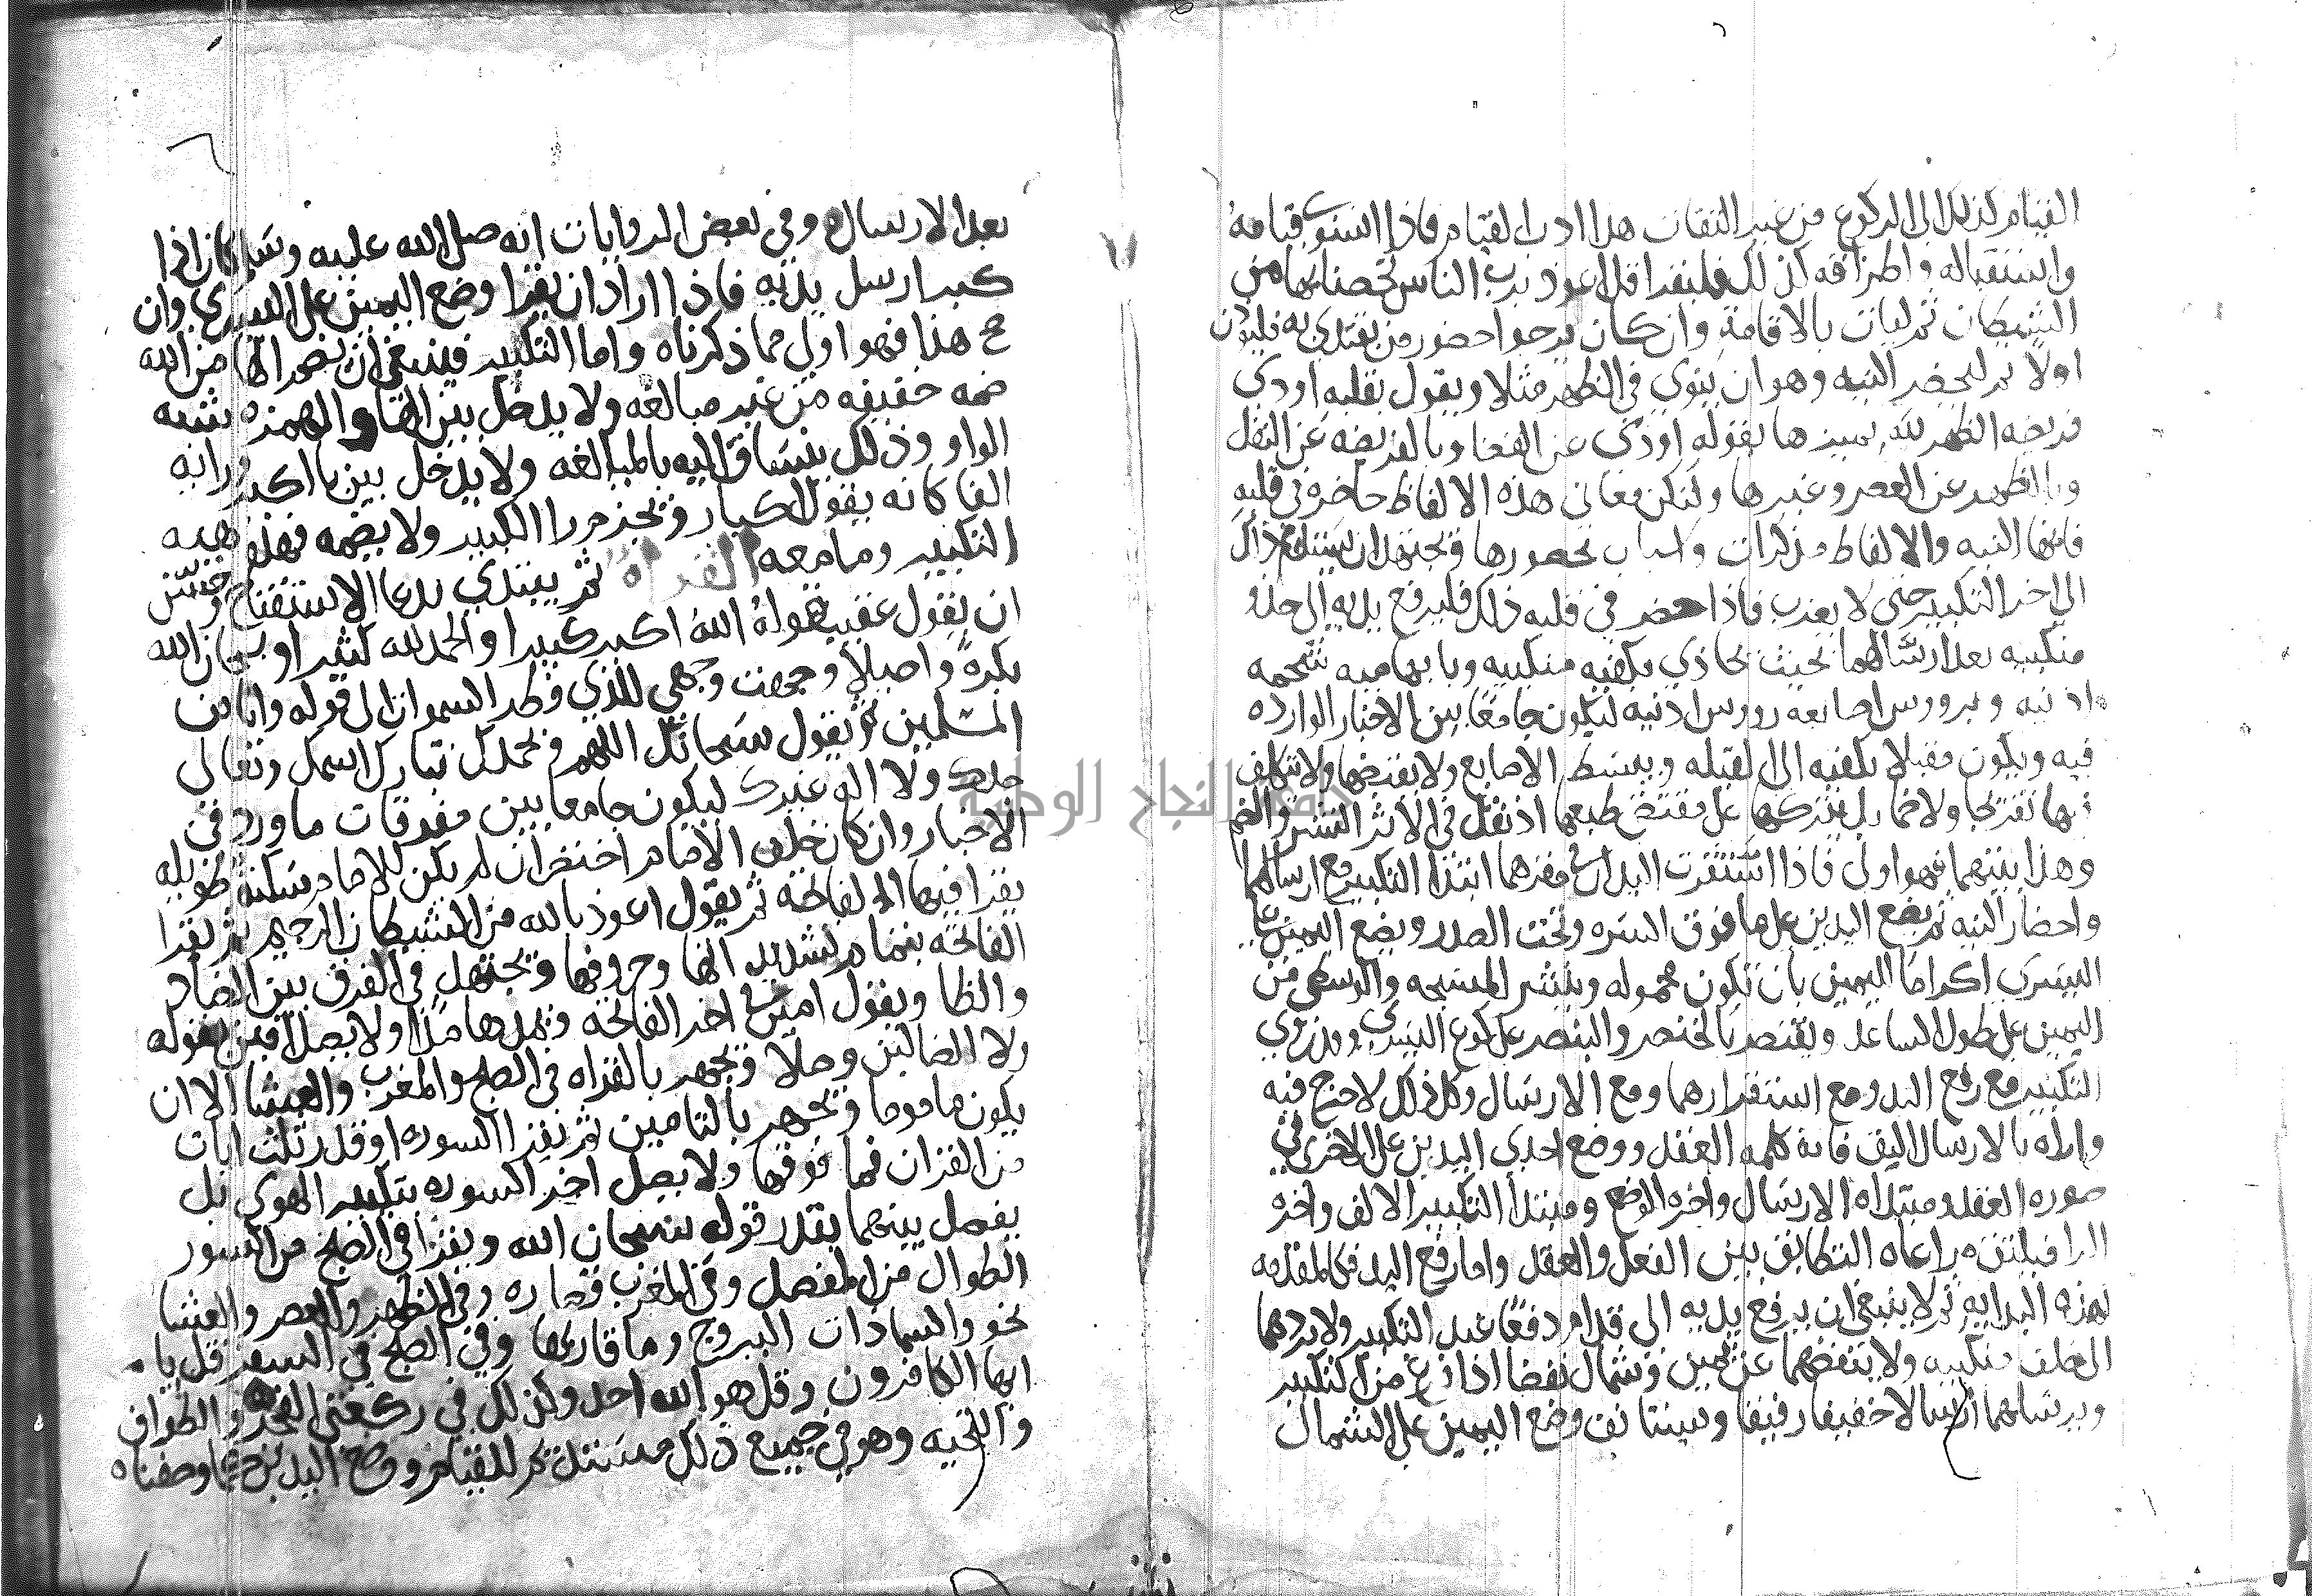 القيام كذلك الى الركوع من غير التفات هذا ادب القيام فاذا استوى قيامه
واستقباله واطراقه كذلك فليقرا قل اعوذ برب الناس تحصنا بها من
الشيطان ثم ليات بالاقامة وان كان يرجوا حضور من يقتدي به فليؤذن
اولا ثم ليحضر النيه وهو ان ينوي في الظهر مثلا ويقول بقلبه اودي
فريضه الظهر لله يميزها بقوله اودي عن القضا وبالفريضه عن النفل
وبالظهر عن العصر وغيرها ولتكن معاني هذه الالفاظ حاضره في قلبه
فانها النيه والالفاظ مذكرات واسباب لحضورها ويجتهد ان يستديم ذلك
الى اخر التكبير حتى لا يعزب فاذا حضر في قلبه ذلك فليرفع يديه الى حذو
منكبيه بعد ارسالهما بحيث يحاذي بكفيه منكبيه وبابهاميه شحمه
اذنيه وبرووس اصابعه رووس اذنيه ليكون جامعا بين الاخبار الوارده
فيه ويكون مقبلا بكفيه الى القبله ويبسط الاصابع ولا يقبضها ولا يتكلف
فيها تفريجا ولا ضما بل يتركها على مقتضى طبعها اذ نقل في الاثر النشر والضم
وهذا بينهما فهو اولى فاذا استقرت اليدان في مقرهما ابتدا التكبير مع ارسالهما
واحضار النيه ثم يضع اليدين على ما فوق السره وتحت الصدر ويضع اليمنى على
اليسرى اكراما لليمين بان تكون محموله وينشر المسبحه والوسطى من
اليمين على طول الساعد ويقبض بالخنصر والبنصر على كوع اليسرى وقد روي
التكبير مع رفع اليد ومع استقرارهما ومع الارسال وكل ذلك لا حرج فيه
واراه بالارسال اليق فانه كلمه العقد ووضع احدى اليدين على الاخرى في
صوره العقد ومبتداه الارسال واخره الوضع ومبتدأ التكبير الالف واخره
الرا فيليق مراعاه التطابق بين الفعل والعقد واما رفع اليد فكالمقدمه
لهذه البدايه ثم لا ينبغي ان يرفع يديه الى قدام دفعا عند التكبير ولا يردهما
الى خلف منكبيه ولا ينفضهما عن يمين وشمال نفضا اذا فرغ من التكبير
ويرسلهما ارسالا خفيفا رفيقا ويستانف وضع اليمين على الشمال
بعد الارسال وفي بعض الروايات انه صلى الله عليه وسلم كان اذا
كبر ارسل يديه فاذا اراد ان يقرا وضع اليمنى على اليسرى وان
صح هذا فهو اولى مما ذكرناه واما التكبير فينبغي ان يضم الها من الله
ضمه خفيفه من غير مبالغه ولا يدخل بين الها والهمزه شبه
الواو وذلك ينساق اليه بالمبالغه ولا يدخل بين با اكبر ورايه
الفا كانه يقول اكبار ويجزم را التكبير ولا يضمه فهذه هيه
التكبير وما معه القراة ثم يبتدي بدعا الاستفتاح وحسن
ان يقول عقيب قوله الله اكبر كبيرا والحمد لله كثيرا وسبحان الله
بكرة واصيلا وجهت وجهي للذي فطر السموات الى قوله وانا من
المسلمين ثم يقول سبحانك اللهم وبحمدك تبارك اسمك وتعالى
جدك ولا اله غيرك ليكون جامعا بين مفرقات ما ورد في
الاخبار وان كان خلف الامام اختصر ان لم يكن للامام سكته طويله
يقرا فيها الفاتحة ثم يقول اعوذ بالله من الشيطان الرجيم ثم يقرا
الفاتحه بتمام تشديداتها وحروفها ويجتهد في الفرق بين الضاد
والظا ويقول امين في اخر الفاتحه ويمدها مدا ولا يصل امين بقوله
ولا الضالين وصلا ويجهر بالقراه في الصبح والمغرب والعشا الا ان
يكون ماموما ويجهر بالتامين ثم يقرا السوره او قدر ثلث ايات
من القران فما فوقها ولا يصل اخر السوره بتكبير الهوي بل
يفصل بينهما بقدر قوله سبحان الله ويقرا في الصبح من السور
الطوال من المفصل وفي المغرب قصاره وفي الظهر والعصر والعشا
نحو والسما ذات البروج وما قاربها وفي الصبح في السفر قل يا
ايها الكافرون وقل هو الله احد وكذلك في ركعتي الفجر والطواف
والتحيه وهو في جميع ذلك مستديم للقيام ووضع اليدين كما وصفناه
جامعة النجاح الوطنية